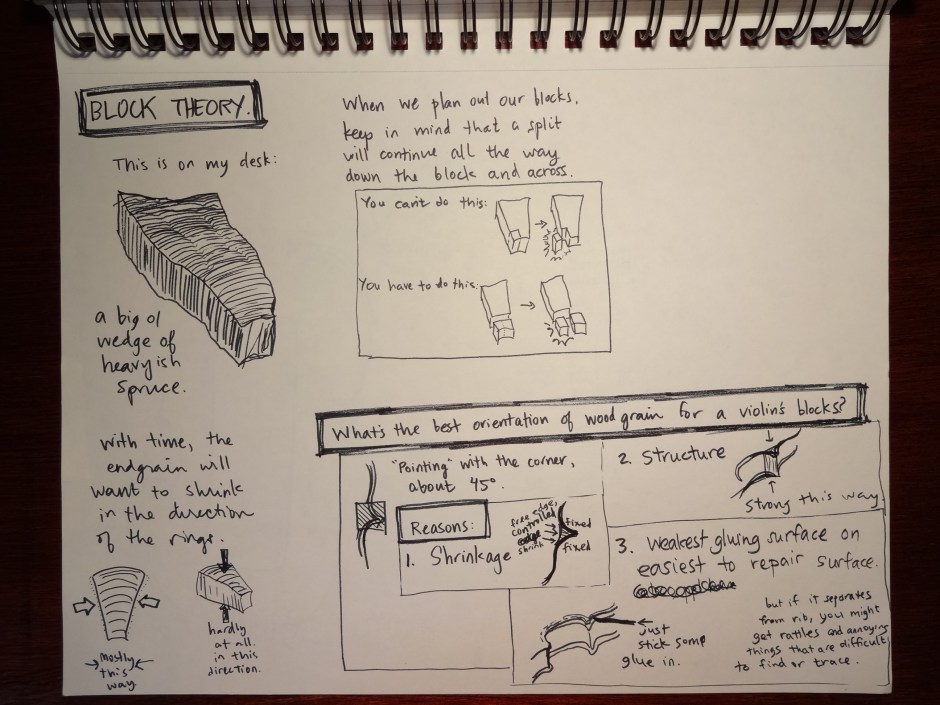 BLOCK THEORY.
This is on my desk:
a big ol
wedge of
heavyish
spruce.
With time, the
endgrain will
want to shrink
in the direction
of the rings.
mostly
this
way
hardly
at all
in this
direction.
When we plan out our blocks,
keep in mind that a split
will continue all the way
down the block and across.
You can't do this:
You have to do this:
What's the best orientation of wood grain for a violin's blocks?
"Pointing" with the corner,
about 45°.
Reasons:
1. Shrinkage
free edge,
controlled
edge
shrink
fixed
fixed
2. Structure
Strong this way
3. Weakest gluing surface on
easiest to repair surface.
just
stick some
glue in.
but if it separates
from rib, you might
get rattles and annoying
things that are difficult
to find or trace.